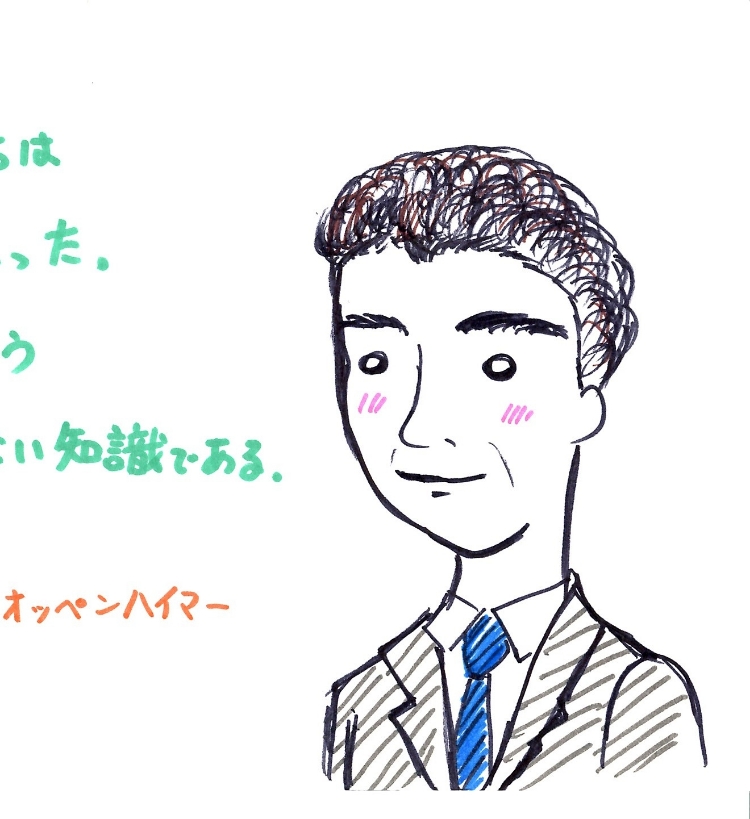 は
った。
う
い知識である.
オッペンハイマー